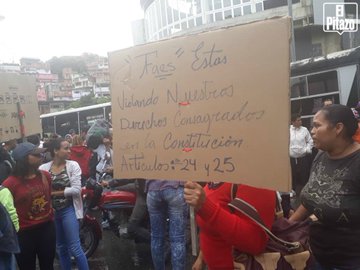 El
Pitazo
¿"Faes" Estas
Violando Nuestros
Derechos Consagrados
en la Constitución
Artículos: 24 y 25